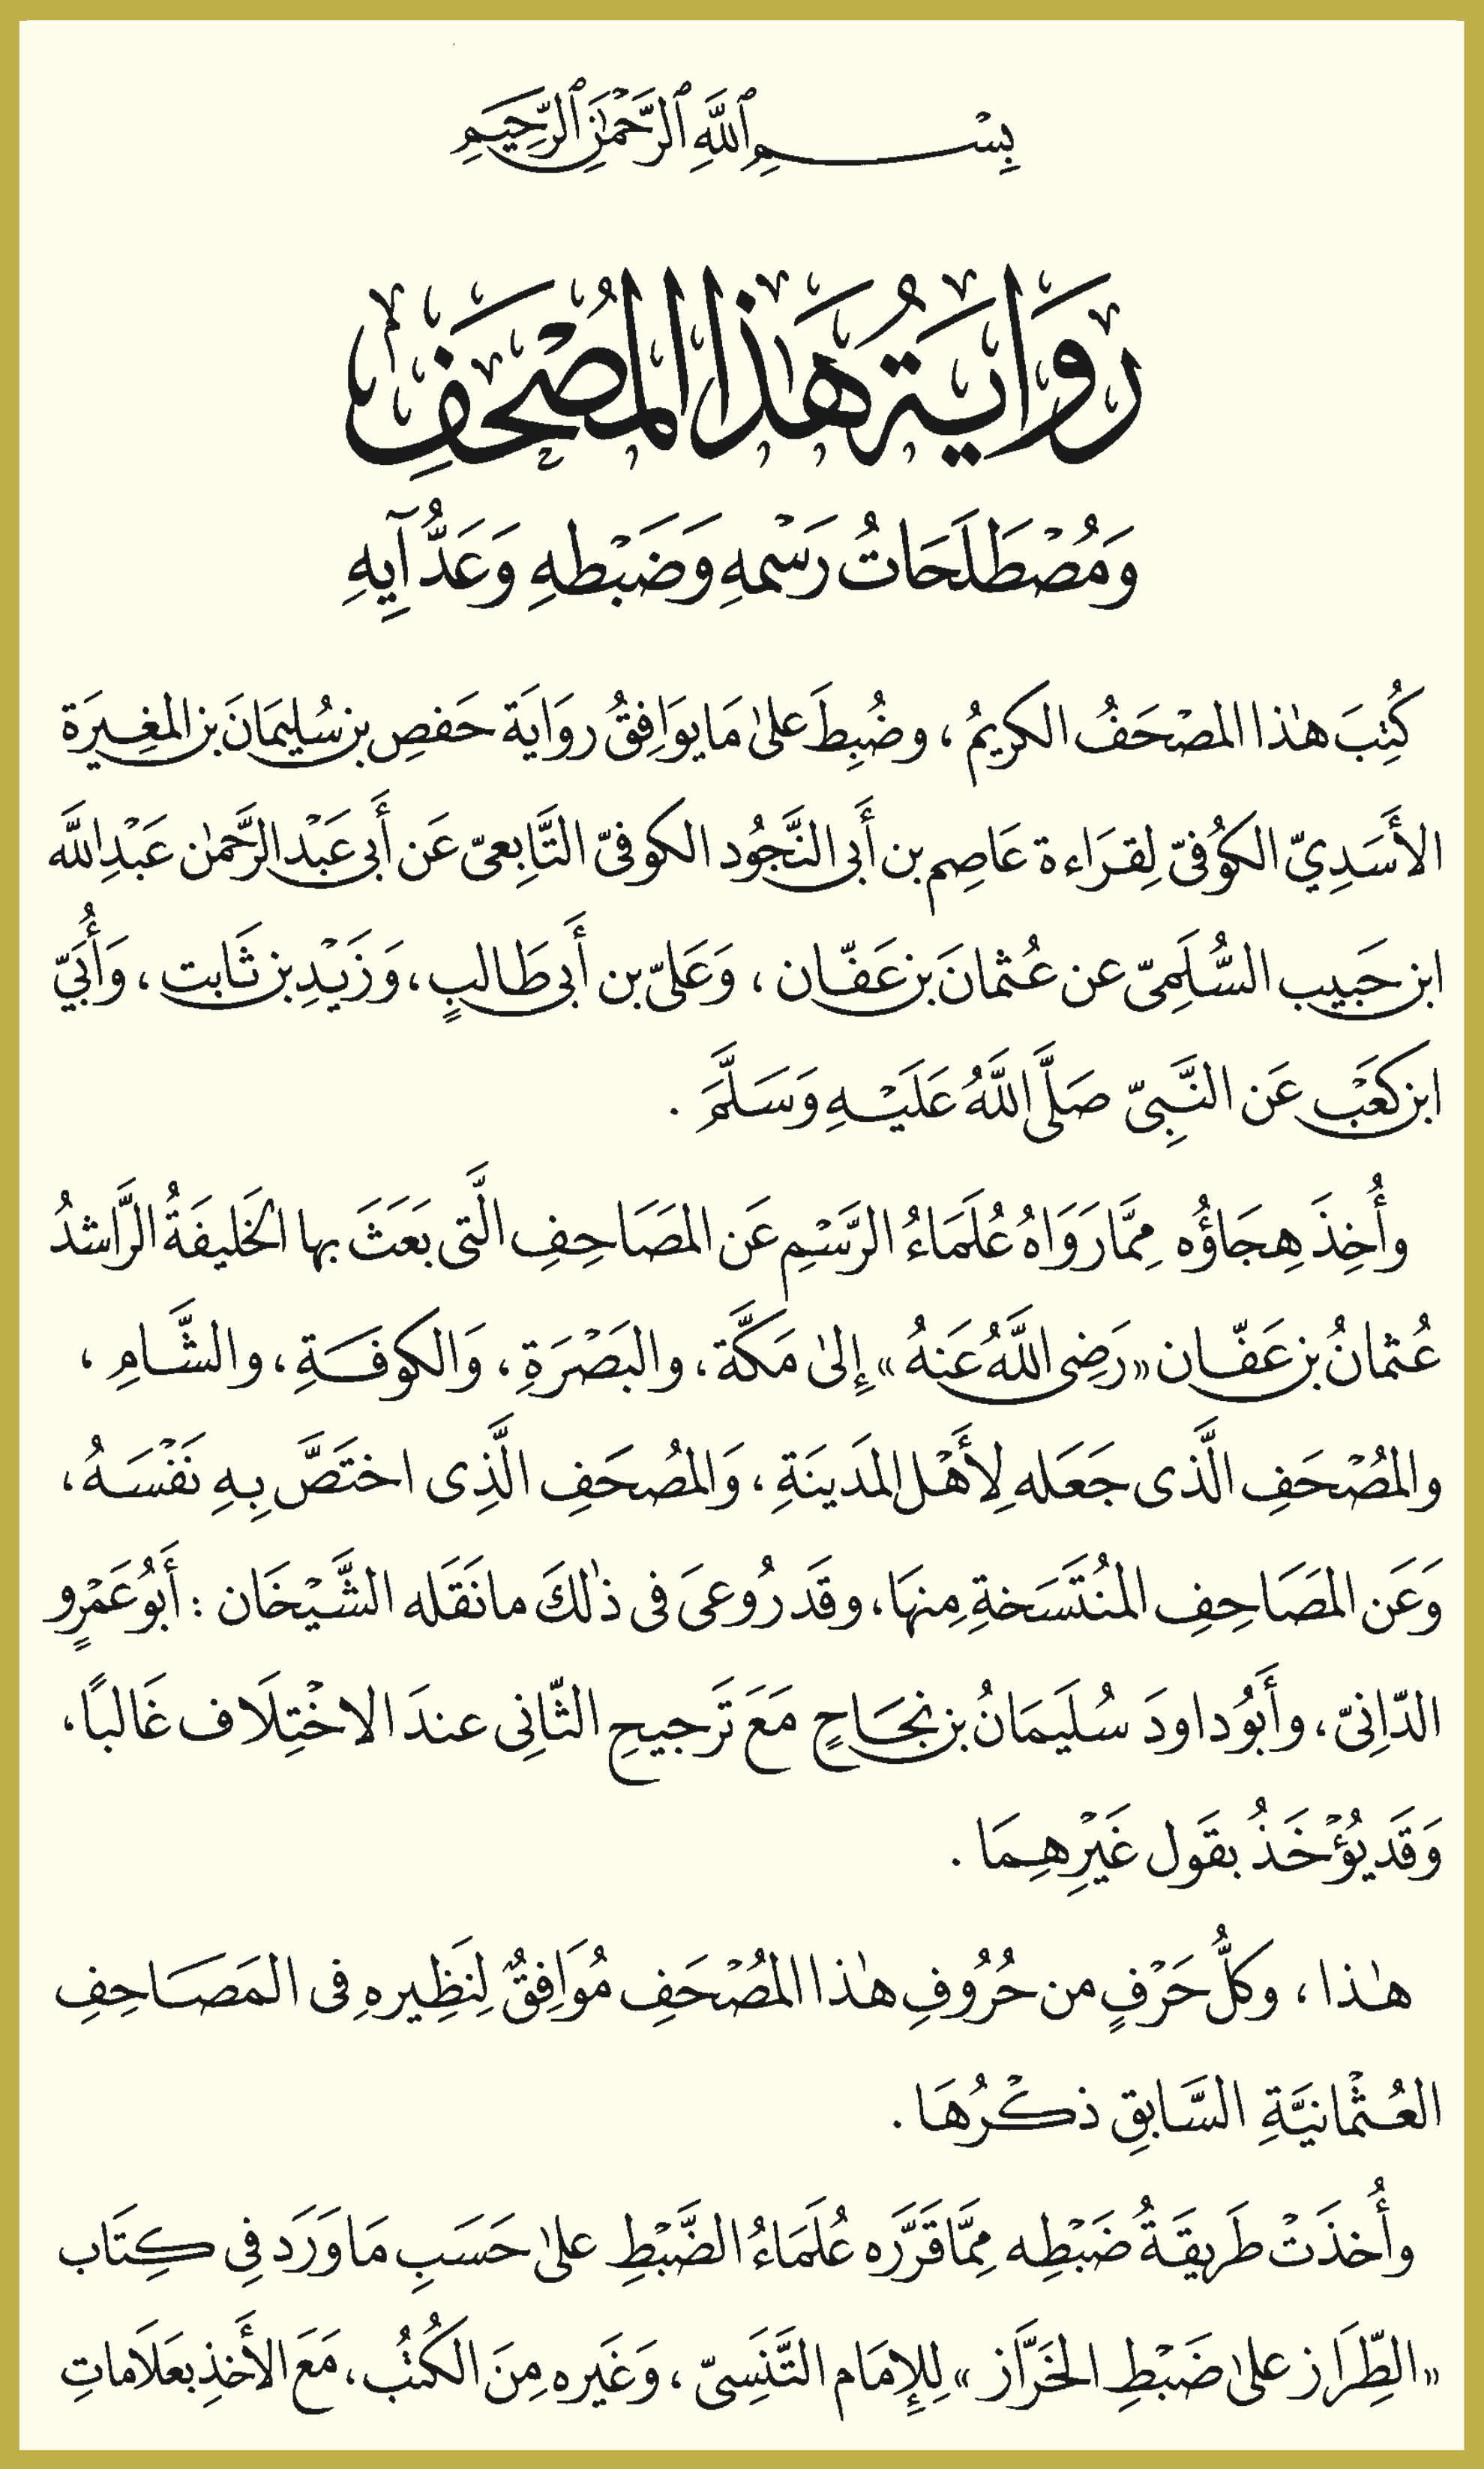 بِسْمِ ٱللَّهِ ٱلرَّحْمَٰنِ ٱلرَّحِيمِ
رِوَايَةُ هَٰذَا المُصْحَفِ
وَمُصْطَلَحَاتُ رَسْمِهِ وَضَبْطِهِ وَعَدُّ آيِهِ
كُتِبَ هٰذا المصْحَفُ الكريمُ ، وضُبِطَ علىٰ مَا يوَافِقُ روَايَة حَفصِ بن سُليمَانَ بن المغِيرَة
الأَسَدِيّ الكوُفىّ لِقرَاءة عَاصِم بن أَبى النَّجُود الكوفىّ التَّابِعىّ عَن أَبى عَبْد الرَّحمٰن عَبْدِ اللَّه
ابن حَبيب السُّلَمِىّ عن عُثمَانَ بن عَفّان ، وَعَلىّ بن أَبى طَالبٍ ، وَزَيْدِ بن ثَابت ، وَأُبَيّ
ابن كعْب عَن النَّبِىّ صَلَّى اللَّهُ عَلَيْهِ وَسَلَّمَ .
وأُخِذَ هِجَاؤُه مِمَّا رَوَاهُ عُلَمَاءُ الرَّسْمِ عَن المصَاحِفِ الَّتى بَعَثَ بها الخَليفَةُ الرَّاشدُ
عُثمانُ بن عَفّان «رَضِى اللَّهُ عَنهُ» إِلىٰ مَكَّة ، والبَصْرَةِ ، وَالكوفَةِ ، والشَّامِ ،
والمُصْحَفِ الَّذى جَعَله لِأَهْل المَدينَةِ ، وَالمُصحَفِ الَّذِى اختَصَّ بِهِ نَفْسَهُ ،
وَعَن المَصَاحِفِ المُنْتَسَخةِ مِنهَا ، وقَد رُوعىَ فى ذٰلكَ ما نَقَله الشَّيْخَان : أَبُو عَمْرٍو
الدّانِىّ ، وأَبوُ داودَ سُلَيمَانُ بن نجَاحٍ مَعَ تَرجيحِ الثّانِى عندَ الاخْتِلَاف غَالبًا ،
وَقَد يُؤْخَذُ بقَول غَيْرِهِمَا .
هٰذا ، وكلُّ حَرْفٍ من حُرُوفِ هٰذا المُصْحَفِ مُوَافِقٌ لِنَظِيرهِ فى المَصَاحِفِ
العُثْمانيَّةِ السَّابقِ ذكْرُهَا .
وأُخذَتْ طَريقَةُ ضَبْطِه مِمَّا قَرَّرَه عُلَمَاءُ الضَّبْطِ علىٰ حَسَبِ مَا وَرَد فِى كِتَاب
«الطِّرَاز علىٰ ضَبْطِ الخَرَّاز» لِلإِمَام التَّنَسِىّ ، وَغَيره مِنَ الكُتُب ، مَعَ الأَخذِ بعَلَاماتِ